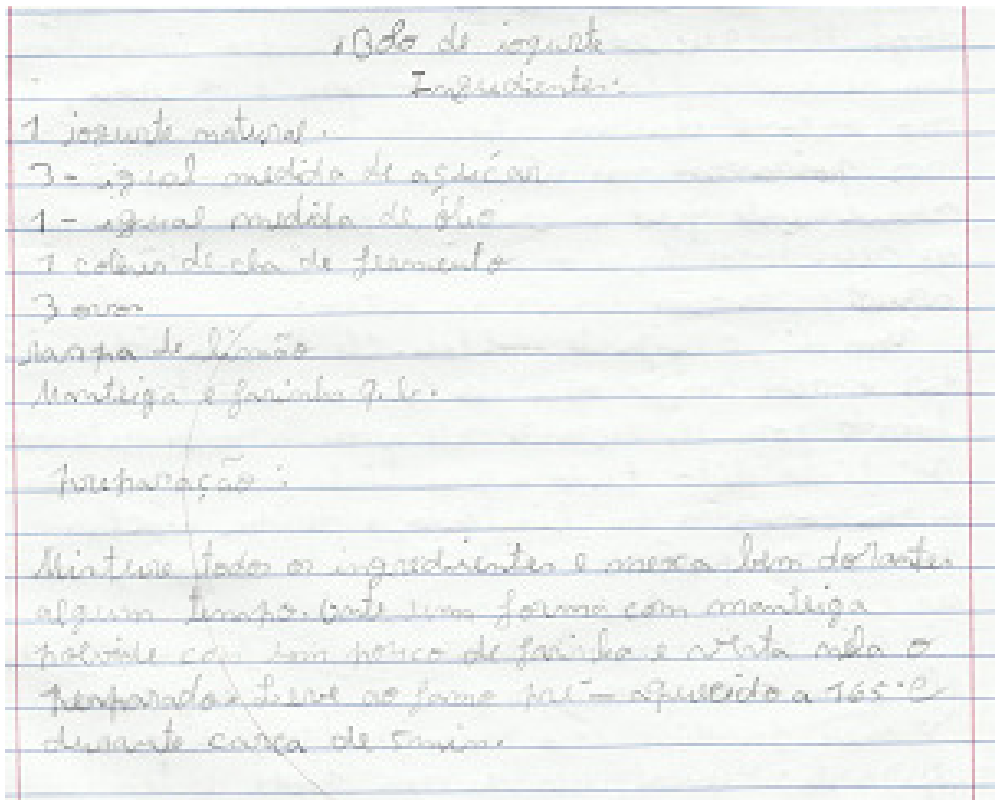 Bolo de iogurte
Ingredientes:
1 iogurte natural.
3 - igual medida de açúcar
1 - igual medida de ólio
1 colher de cha de fermento
3 ovos
raspa de limão
Manteiga e farinha q.b.
preparação:
Misture todos os ingredientes e mexa bem dorante
algum tempo. Unte um forma com manteiga
polvilhe com um pouco de farinha e nela o
preparado. Leve ao forno pré-aquecido a 165°C
durante cerca de 5 min.